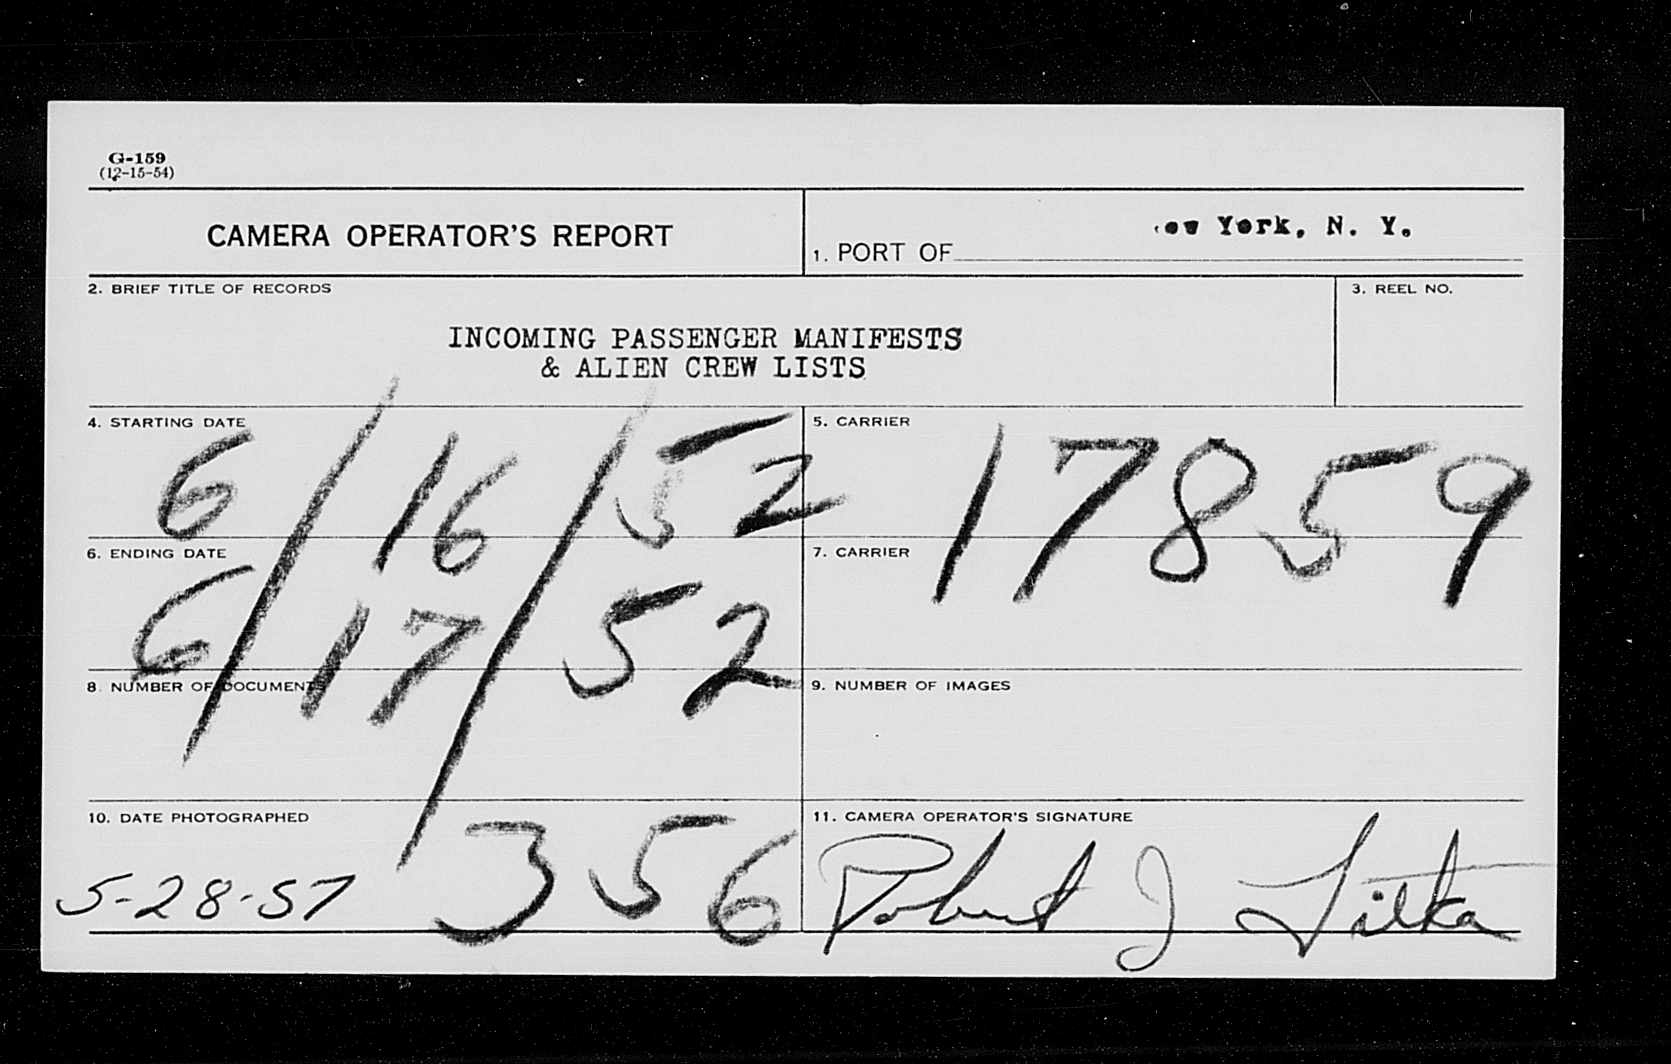 G-159
(12-15-54)
CAMERA OPERATOR'S REPORT
1. PORT OF ew York, N. Y.
2. BRIEF TITLE OF RECORDS
3. REEL NO.
INCOMING PASSENGER MANIFESTS
& ALIEN CREW LISTS
4. STARTING DATE
6/16/52
5. CARRIER
17859
6. ENDING DATE
6/17/52
7. CARRIER
8. NUMBER OF DOCUMENTS
9. NUMBER OF IMAGES
10. DATE PHOTOGRAPHED
5-28-57
356
11. CAMERA OPERATOR'S SIGNATURE
Robert J